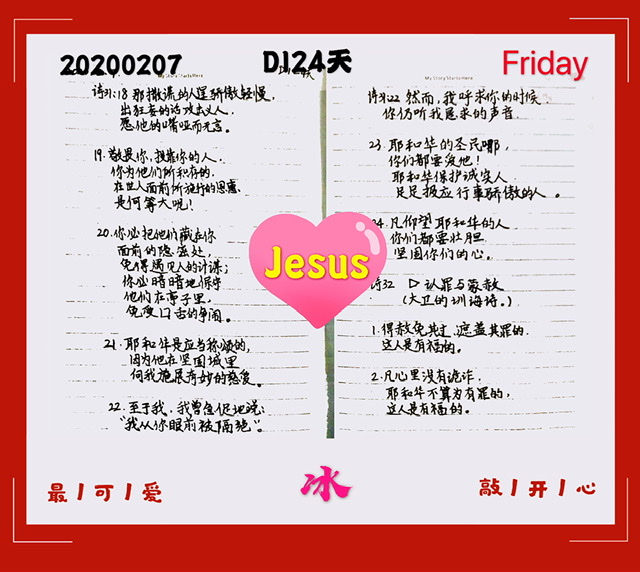 20200207
D124天
Friday
My Story Starts Here
诗31:18 那撒谎的人逞骄傲轻慢,
出狂妄的话攻击义人.
愿他的嘴哑而无言.
19. 敬畏你,投靠你的人.
你为他们所积存的.
在世人面前所施行的恩惠.
是何等大呢!
20. 你必把他们藏在你
面前的隐密处,
免得遇见人的计谋;
你必暗暗地保守
他们在亭子里,
免受口舌的争闹.
21. 耶和华是应当称颂的,
因为他在坚固城里
向我施展奇妙的慈爱。
22. 至于我,我曾急促地说:
"我从你眼前被隔绝".
My Story Starts Here
诗31:22 然而,我呼求你的时候
你仍听我恳求的声音.
23. 耶和华的圣民哪,
你们都要爱他!
耶和华保护诚实人
足足报应行事骄傲的人。
24. 凡仰望耶和华的人
你们都要壮胆.
坚固你们的心。
Jesus
诗32 ▷认罪与蒙赦
(大卫的训诲诗.)
1. 得赦免其过.遮盖其罪的.
这人是有福的.
2. 凡心里没有诡诈.
耶和华不算为有罪的,
这人是有福的.
最丨可丨爱
冰
敲丨开丨心